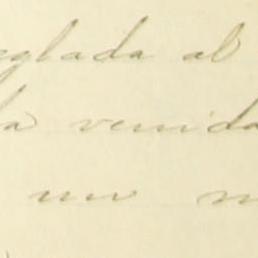 eglada al
la venida
un